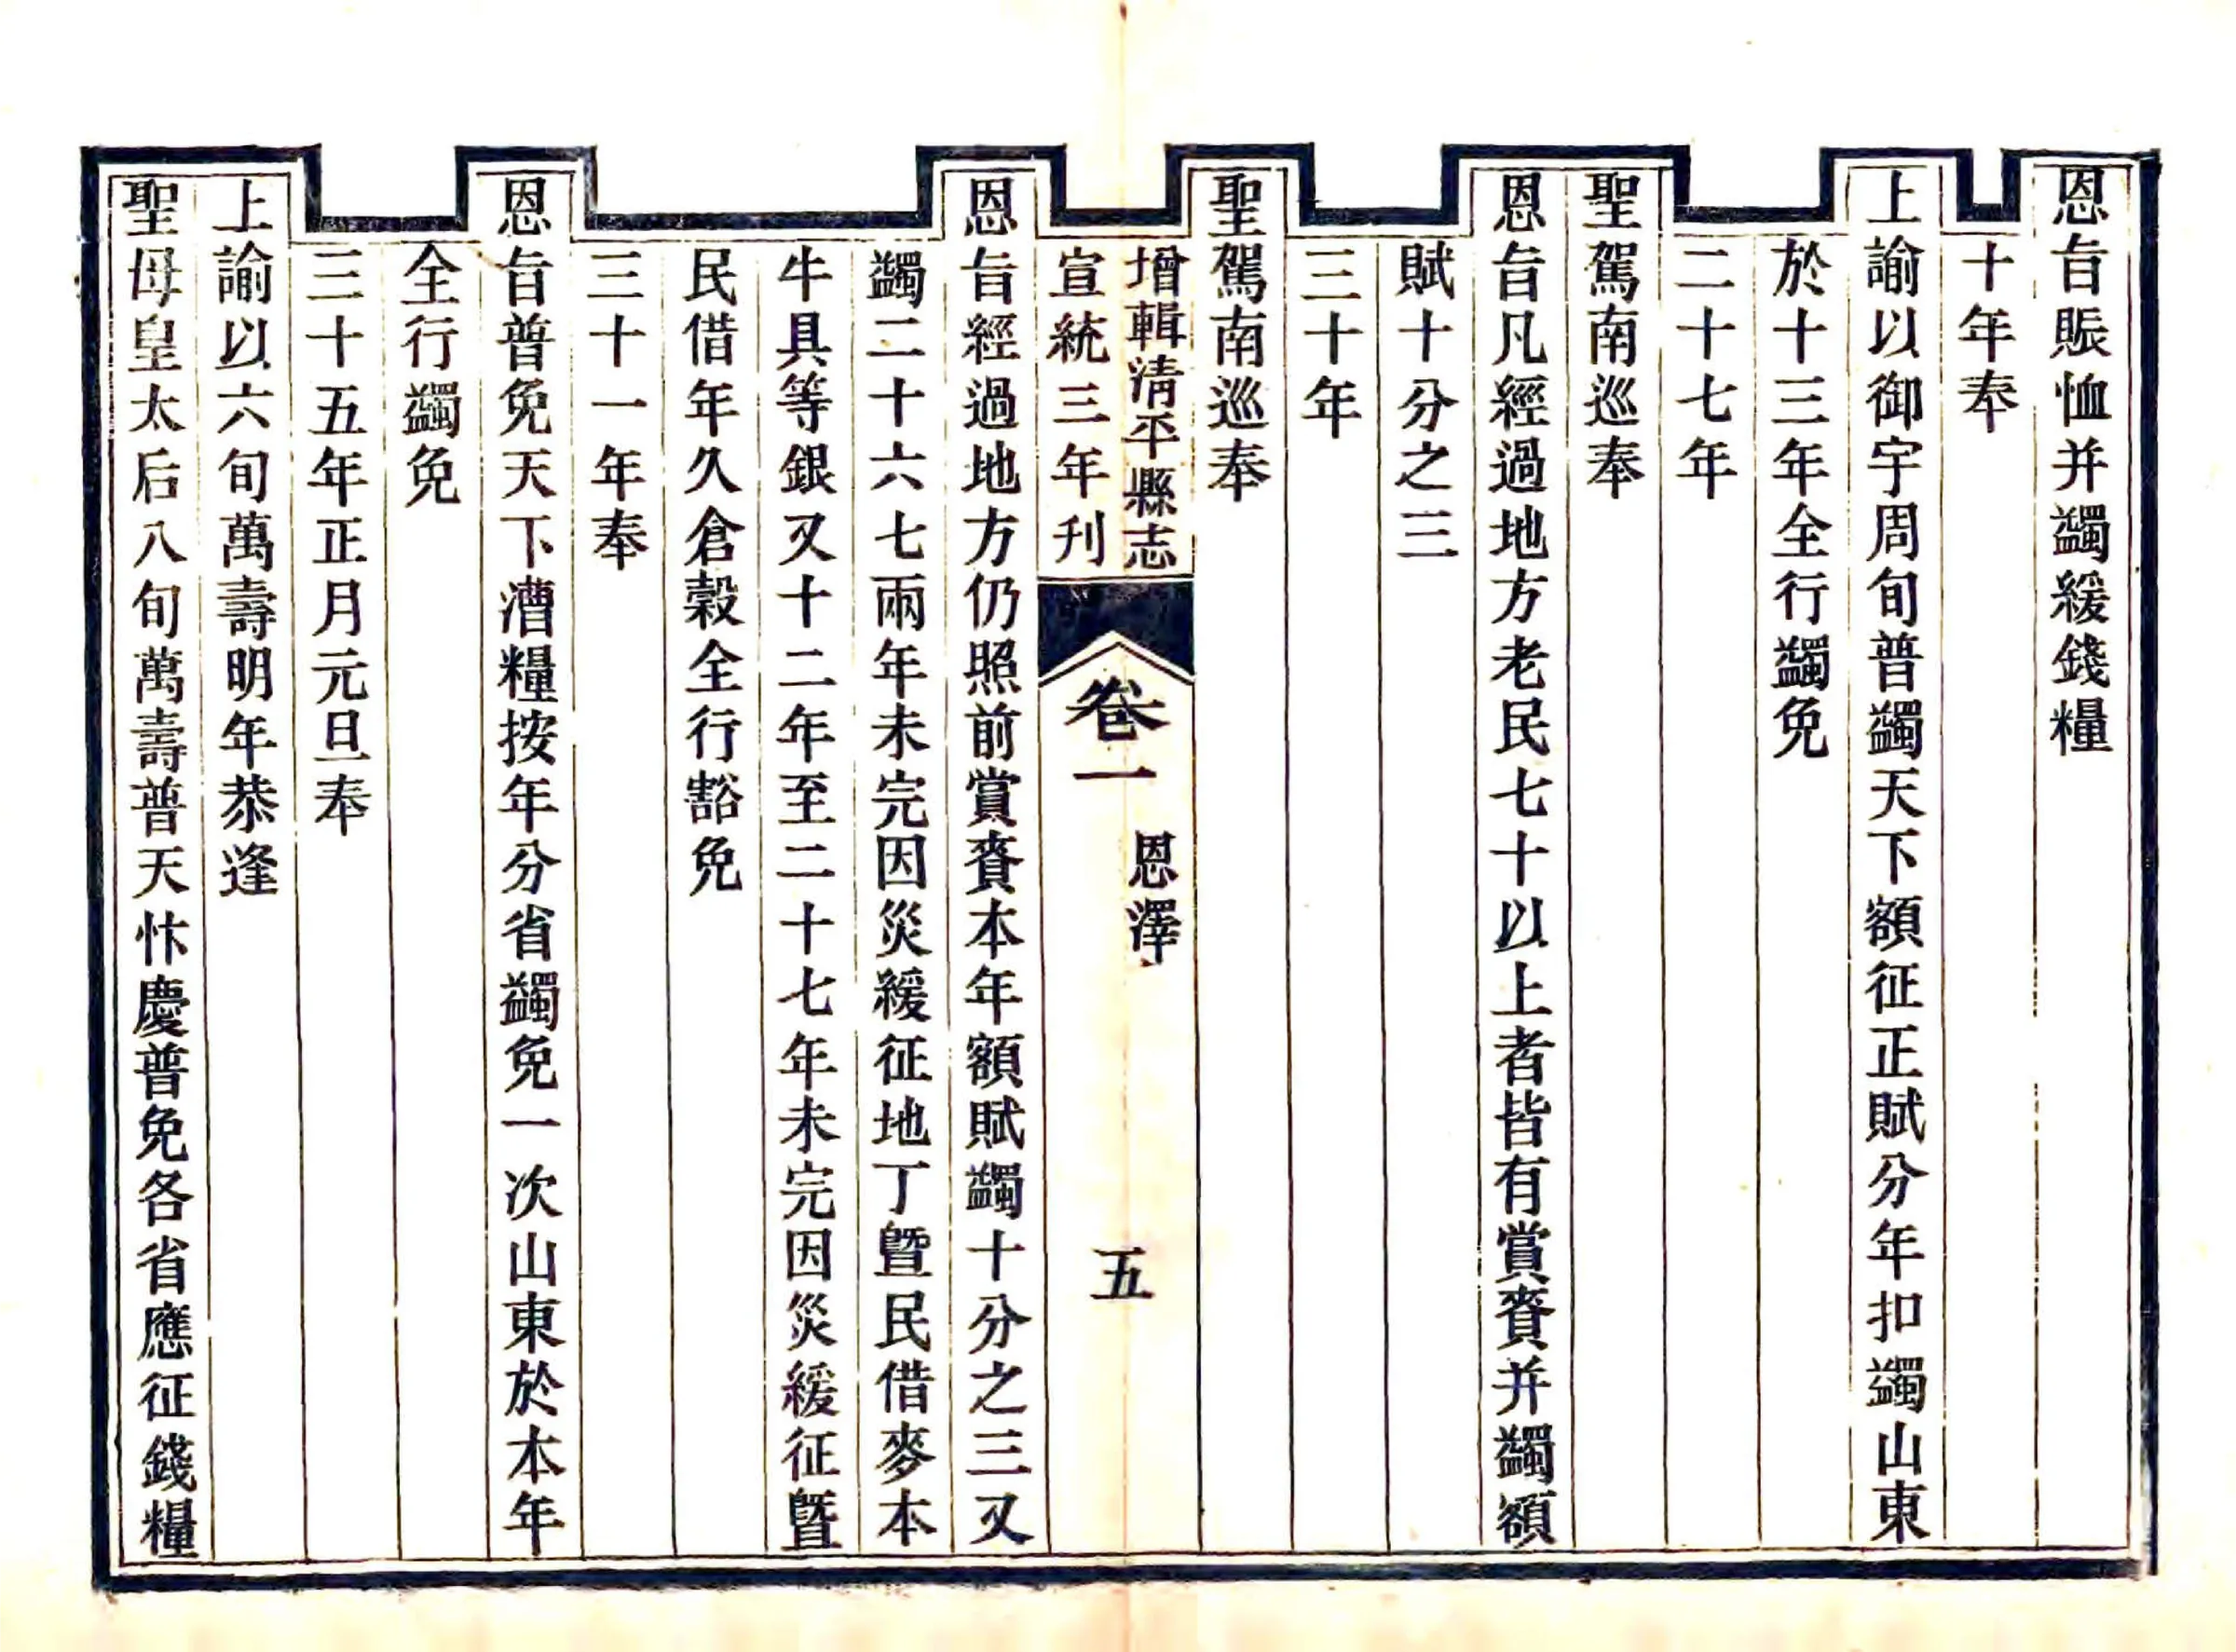 恩旨賑恤并蠲緩錢糧
十年奉
上諭以御宇周旬普蠲天下額征正賦分年扣蠲山東
於十三年全行蠲免
二十七年
聖駕南巡奉
恩旨凡經過地方老民七十以上者皆有賞賚并蠲額
賦十分之三
三十年
聖駕南巡奉
增輯清平縣志
宣統三年刊
卷一
恩澤
五
恩旨經過地方仍照前賞賚本年額賦蠲十分之三又
蠲二十六七兩年未完因災緩征地丁曁民借麥本
牛具等銀又十二年至二十七年未完因災緩征曁
民借年久倉穀全行豁免
三十一年奉
恩旨普免天下漕糧按年分省蠲免一次山東於本年
全行蠲免
三十五年正月元旦奉
上諭以六旬萬壽明年恭逢
聖母皇太后八旬萬壽普天忭慶普免各省應征錢糧